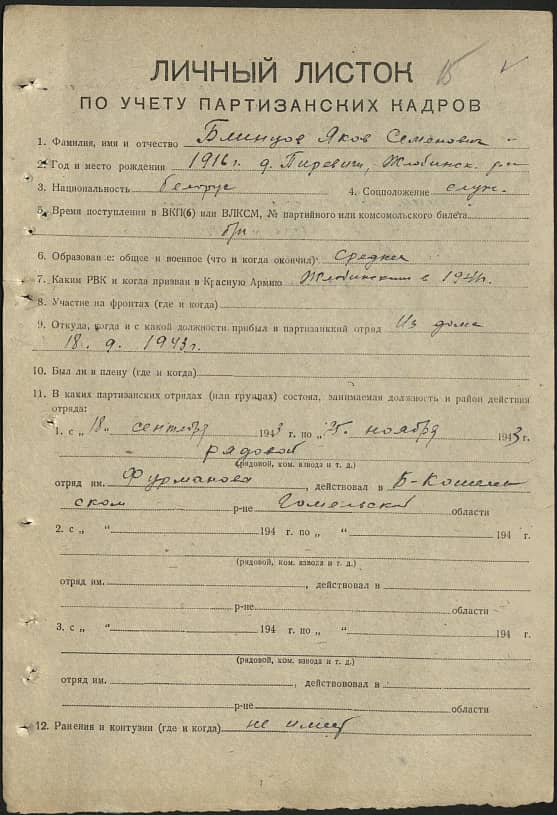 15
ЛИЧНЫЙ ЛИСТОК
ПО УЧЕТУ ПАРТИЗАНСКИХ КАДРОВ
1. Фамилия, имя и отчество Блинцов Яков Семенович
2. Год и место рождения 1916 г. д. Пиревичи, Жлобинск. р-н
3. Национальность белорус 4. Соцположение служ.
5. Время поступления в ВКП(б) или ВЛКСМ, № партийного или комсомольского билета
б/п
6. Образование: общее и военное (что и когда окончил) среднее
7. Каким РВК и когда призван в Красную Армию Жлобинским в 1941 г.
8. Участие на фронтах (где и когда)
9. Откуда, когда и с какой должности прибыл в партизанский отряд Из дома
18. 9. 1943 г.
10. Был ли в плену (где и когда)
11. В каких партизанских отрядах (или группах) состоял, занимаемая должность и район действия
отряда:
1. с „ 18 " сентября 1943 г. по „ 25. ноября 1943 г.
рядовой
(рядовой, ком. взвода и т. д.)
отряд им. Фурманова , действовал в Б-Кошелев
ском р-не Гомельской области
2. с „ " 194 г. по „ " 194 г.
(рядовой, ком. взвода и т. д.)
отряд им. , действовал в
р-не области
3. с „ " 194 г. по „ " 194 г.
(рядовой, ком. взвода и т. д.)
отряд им. , действововал в
р-не области
12. Ранения и контузии (где и когда) не имеет